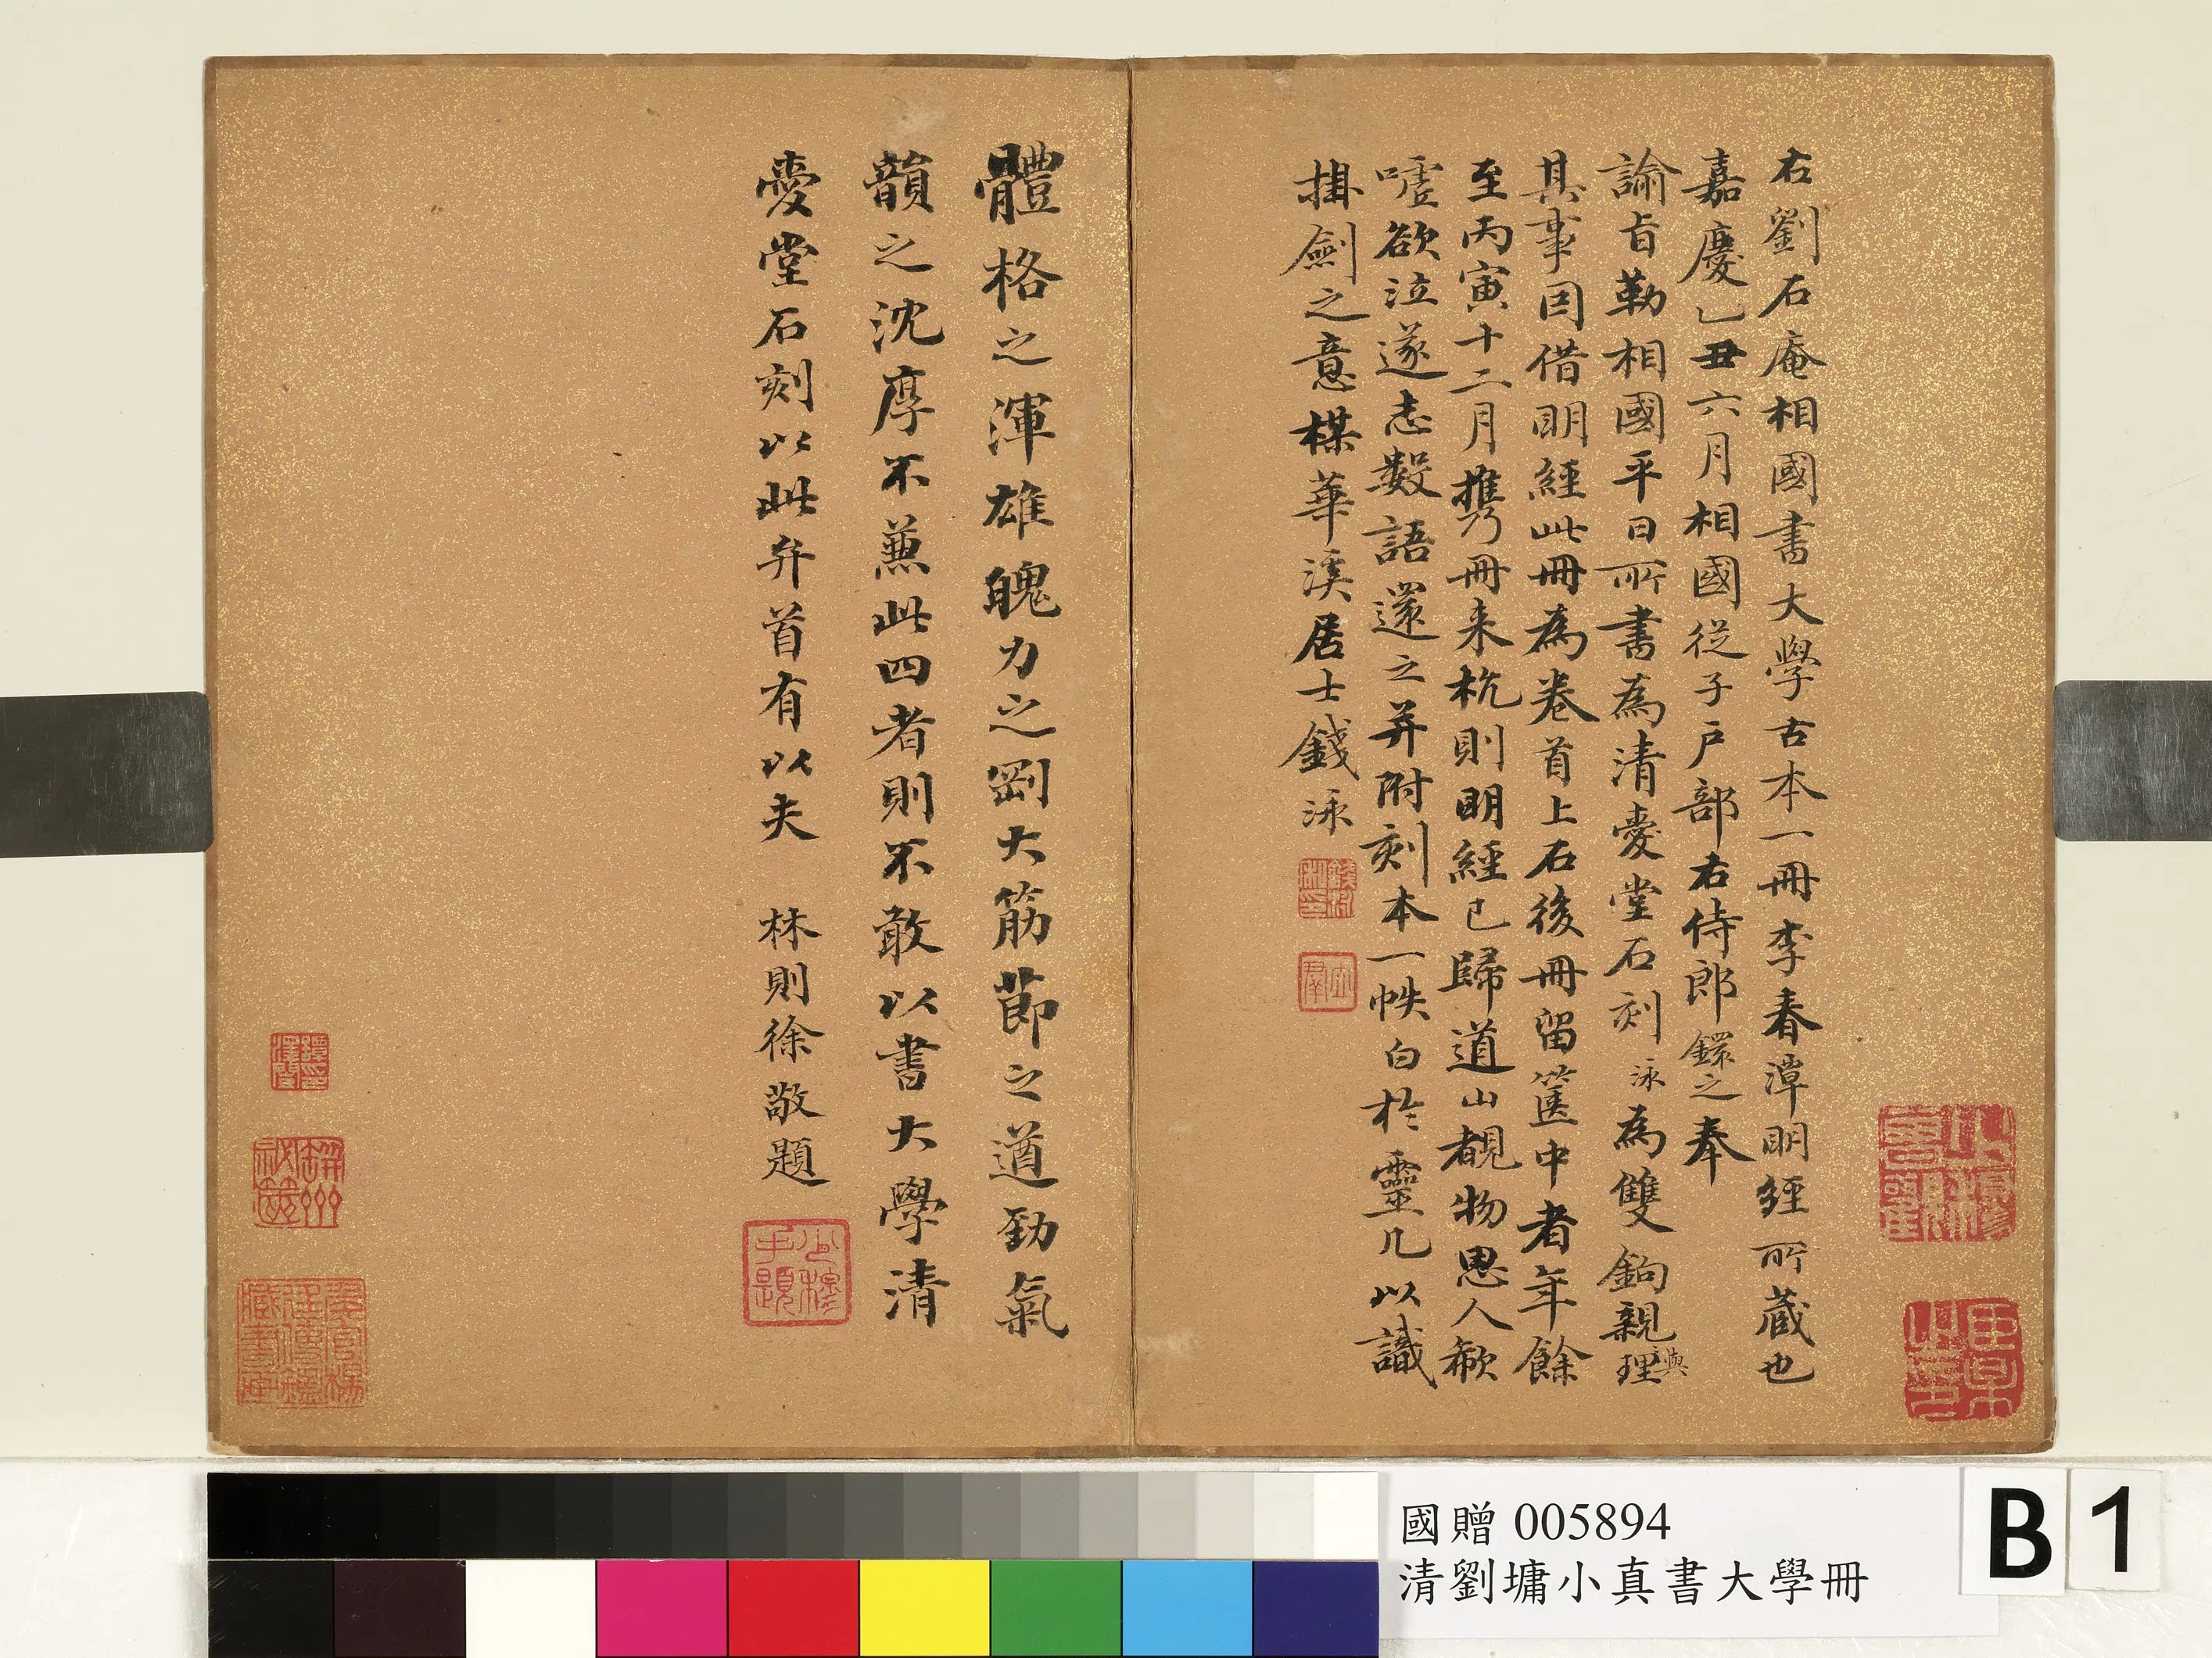 右劉石庵相國書大學古本一冊李春潭明經所藏也
嘉慶乙丑六月相國從子戶部右侍郎鐶之奉
諭旨勒相國平日所書為清愛堂石刻泳為雙鉤親理
與
其事因借明經此冊為卷首上石後冊留篋中者年餘
至丙寅十二月攜冊来杭則明經已歸道山覩物思人欷
嘘欲泣遂志數語還之并附刻本一帙白於靈几以識
掛劍之意楳華溪居士錢泳
體格之渾雄魄力之剛大筋莭之遒勁氣
韻之沈厚不蒹此四者則不敢以書大學清
愛堂石刻以此弁首有以夫　林則徐敬題
少穆
手題
國贈 005894
清劉墉小真書大學冊
B 1